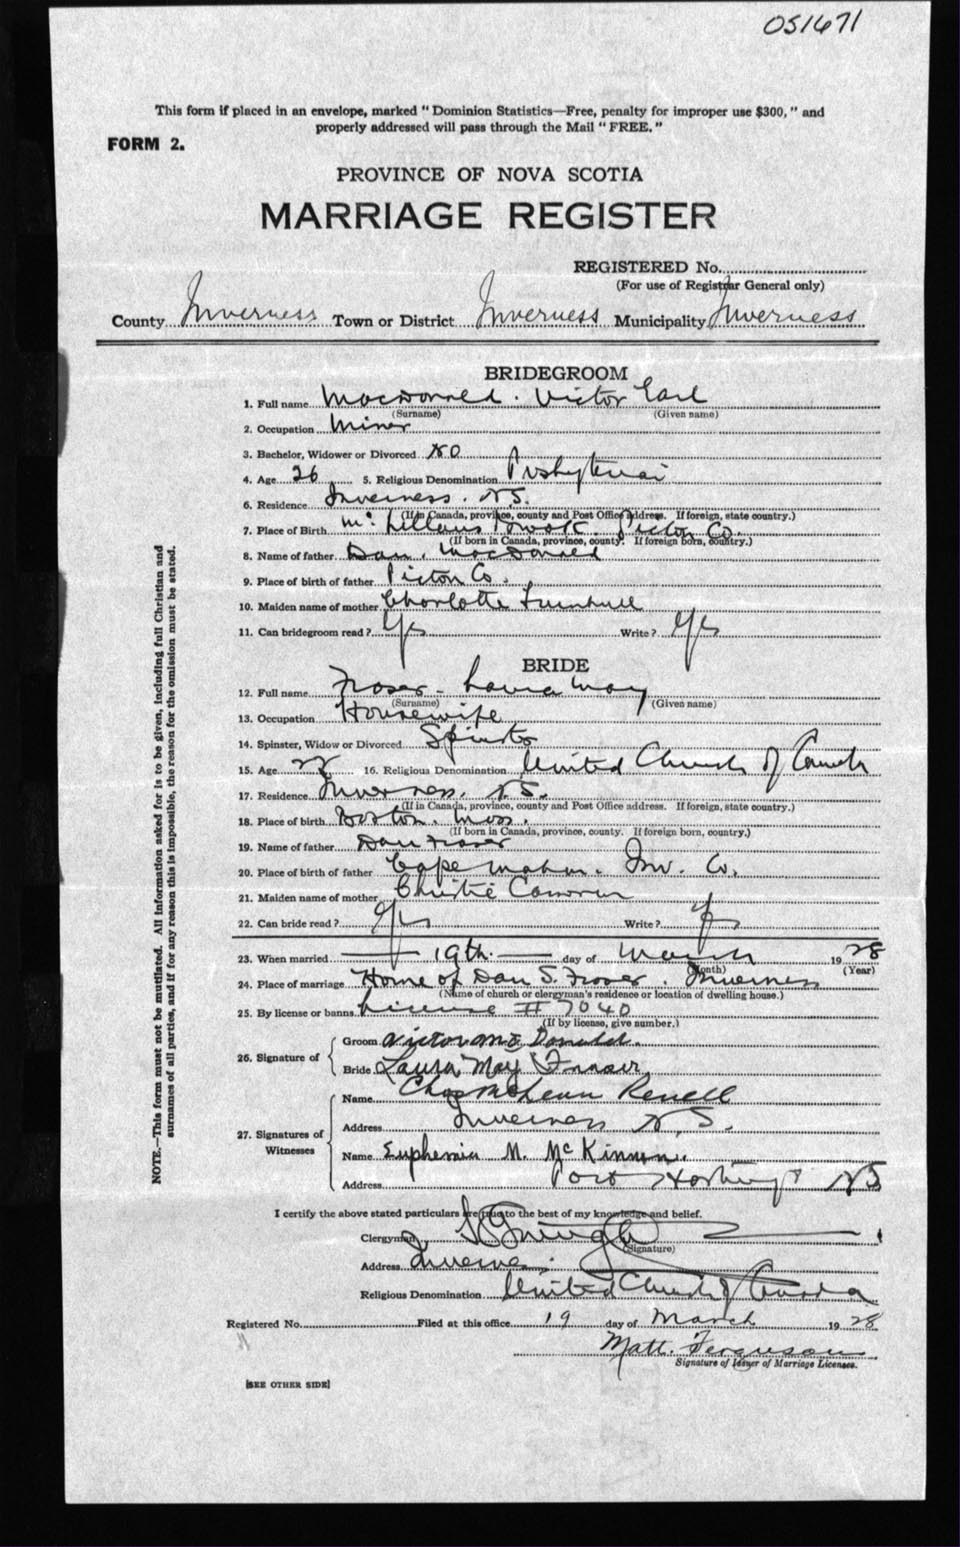 051671
This form if placed in an envelope, marked "Dominion Statistics—Free, penalty for improper use $300," and
properly addressed will pass through the Mail "FREE."
FORM 2.
PROVINCE OF NOVA SCOTIA
MARRIAGE REGISTER
REGISTERED No.
(For use of Registrar General only)
County Inverness Town or District Inverness Municipality Inverness
BRIDEGROOM
1. Full name MacDonald. Victor Earl
(Surname) (Given name)
2. Occupation Miner
3. Bachelor, Widower or Divorced NO
4. Age 26 5. Religious Denomination Presbyterian
6. Residence Inverness. N.S.
(If in Canada, province, county and Post Office address. If foreign, state country.)
7. Place of Birth Picton Co.
(If born in Canada, province, county. If foreign born, country.)
8. Name of father Dan. MacDonald
9. Place of birth of father Picton Co.
10. Maiden name of mother Charlotte Turnbull
11. Can bridegroom read? Yes Write? Yes
BRIDE
12. Full name Fraser - Laura May
(Surname) (Given name)
13. Occupation Housewife
14. Spinster, Widow or Divorced Spinster
15. Age 16. Religious Denomination United Church of Canada
17. Residence Inverness. N.S.
(If in Canada, province, county and Post Office address. If foreign, state country.)
18. Place of birth Boston. Mass.
(If born in Canada, province, county. If foreign born, country.)
19. Name of father Dan Fraser
20. Place of birth of father Cape Mabou. Inv. Co.
21. Maiden name of mother Christie Cameron
22. Can bride read? Yes Write? Yes
23. When married 19th. day of March 1928
(Month) (Year)
24. Place of marriage Home of Dan S. Fraser. Inverness
(Name of church or clergyman's residence or location of dwelling house.)
25. By license or banns License # 7040
(If by license, give number.)
26. Signature of
Groom Victor McDonald.
Bride Laura May Fraser
27. Signatures of Witnesses
Name Chas McLean Revell
Address Inverness N.S.
Name Euphemia M. McKinnon.
Address Port Hastings NS
I certify the above stated particulars are true to the best of my knowledge and belief.
Clergyman
(Signature)
Address Inverness
Religious Denomination United Church of Canada
Registered No. Filed at this office 19 day of March 1928
Matt. Ferguson
Signature of Issuer of Marriage Licenses.
[SEE OTHER SIDE]
NOTE.—This form must not be mutilated. All information asked for is to be given, including full Christian and
surnames of all parties, and if for any reason this is impossible, the reason for the omission must be stated.